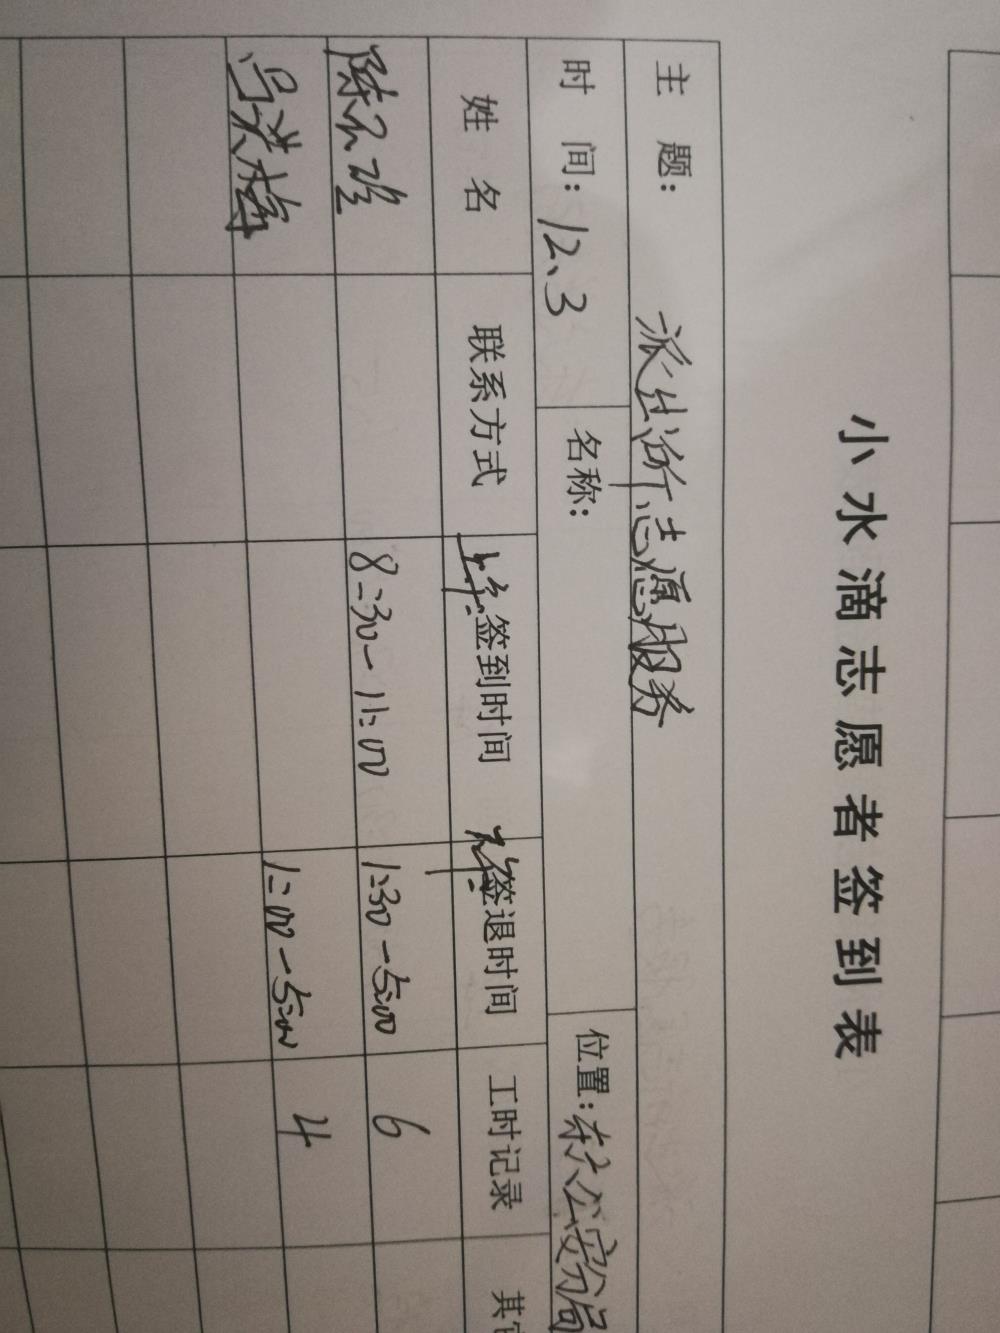 小水滴志愿者签到表
主 题: 派出所志愿服务
时 间: 12、3 名称: 位置: 公安分局
姓 名 联系方式 上午签到时间 下午签退时间 工时记录 其它
陈 8:30-11:00 1:30-5:00 6
吴 梅 1:00-5:00 4